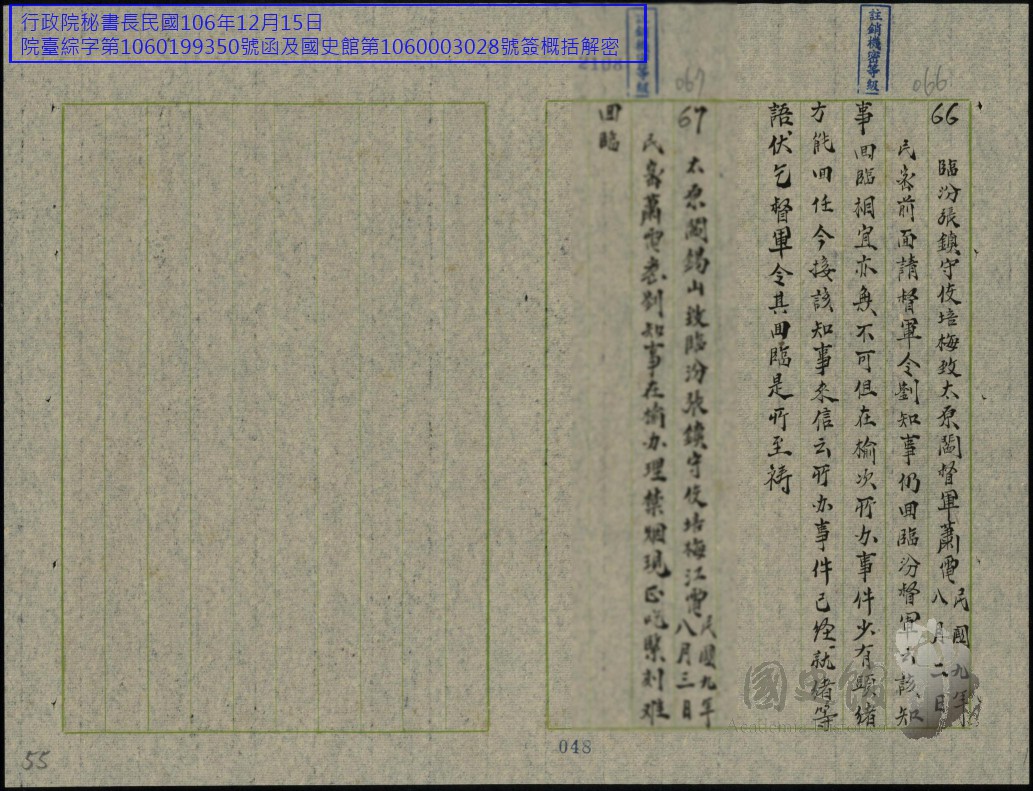 行政院秘書長民國106年12月15日
院臺綜字第1060199350號函及國史館第1060003028號簽概括解密
註銷機密等級
066
66 臨汾張鎮守使培梅致太原閻督軍蕭電 民國九年八月二日
民密前面請督軍令劉知事仍回臨汾督軍云該知
事回臨相宜亦無不可但在榆次所办事件少有頭緒
方能回任今接該知事來信云所办事件已經就緒等
語伏乞督軍令其回臨是所至禱
067
67 太原閻錫山致臨汾張鎮守使培梅江電 民國九年八月三日
民密蕭電悉劉知事在 办理禁烟現正吃緊刻難
回臨
國史館
048
55